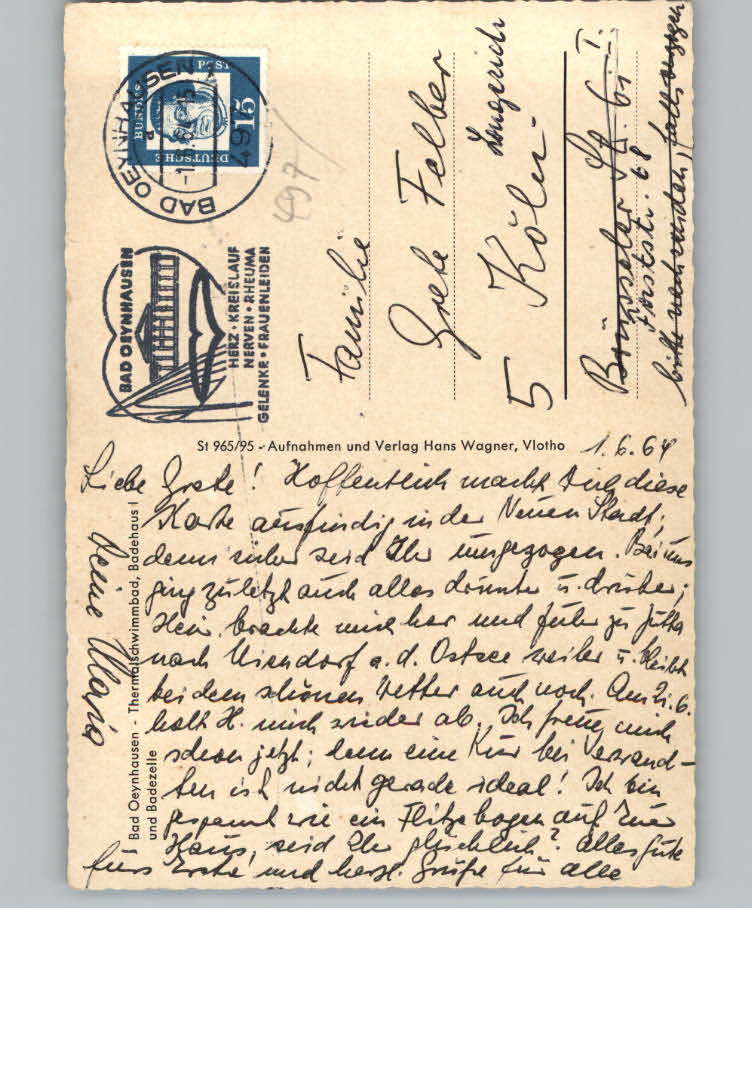 BAD OEYNHAUSEN 1
-1.6.64-15
a
497
DEUTSCHE
BUNDES
POST
15
BAD OEYNHAUSEN
HERZ · KREISLAUF
NERVEN · RHEUMA
GELENKE · FRAUENLEIDEN
497
Familie
Grete Felber
Lengerich
5 Köln
Brüsseler Str. 61 I.
Forststr. 68
bitte nachsenden, falls verzogen
St 965/95 - Aufnahmen und Verlag Hans Wagner, Vlotho
Bad Oeynhausen - Thermalschwimmbad, Badehaus I
und Badezelle
1.6.64
Liebe Grete! Hoffentlich macht Dich diese
Karte ausfindig in der Neuen Stadt;
denn sicher seid Ihr umgezogen. Bei uns
ging zuletzt auch alles drunter u. drüber;
Hein brachte mich her und fuhr zu Jutta
nach Niendorf a.d. Ostsee weiter u. bleibt
bei dem schönen Wetter auch noch. Am 21.6.
holt H. mich wieder ab. Ich freue mich
schon jetzt; denn eine Kur bei Verwand-
ten ist nicht gerade ideal! Ich bin
gespannt wie ein Flitzebogen auf Euer
Haus, seid Ihr glücklich? Alles Gute
fürs Erste und herzl. Grüße für alle
Deine Maria